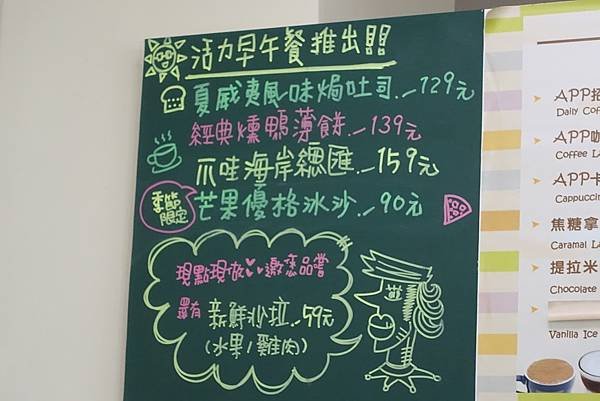 活力早午餐推出!!!
夏威夷風味焗吐司 129元
經典燻鴨薄餅 139元
爪哇海岸總匯 159元
季節限定
芒果優格冰沙 90元
現點現做 邀您品嘗
還有 新鮮沙拉 59元
(水果/雞肉)
APP招
Daily Cof
APP咖
Coffee La
APP卡
Cappuccin
焦糖拿
Caramal La
提拉米
Chocolate
Vanilla Ice